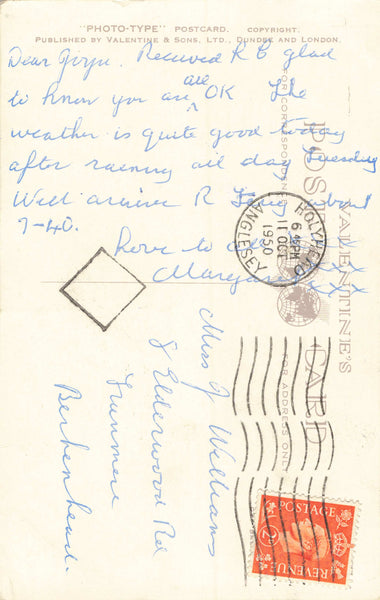 "PHOTO-TYPE" POSTCARD. COPYRIGHT.
PUBLISHED BY VALENTINE & SONS, LTD., DUNDEE AND LONDON.
Dear Received R B glad
to know you are all OK The
weather is quite good today
after raining all day Tuesday
Will arrive R Ferry about
7-40.
Love to all x x x
Margaret xxx
VALENTINE'S
POST CARD
FOR CORRESPONDENCE
FOR ADDRESS ONLY
HOLYHEAD
6 45 PM
11 OCT
1950
ANGLESEY
Miss J Williams
8 Elderwood Rd
Tranmere
Berkenhead.
POSTAGE
2D
REVENUE